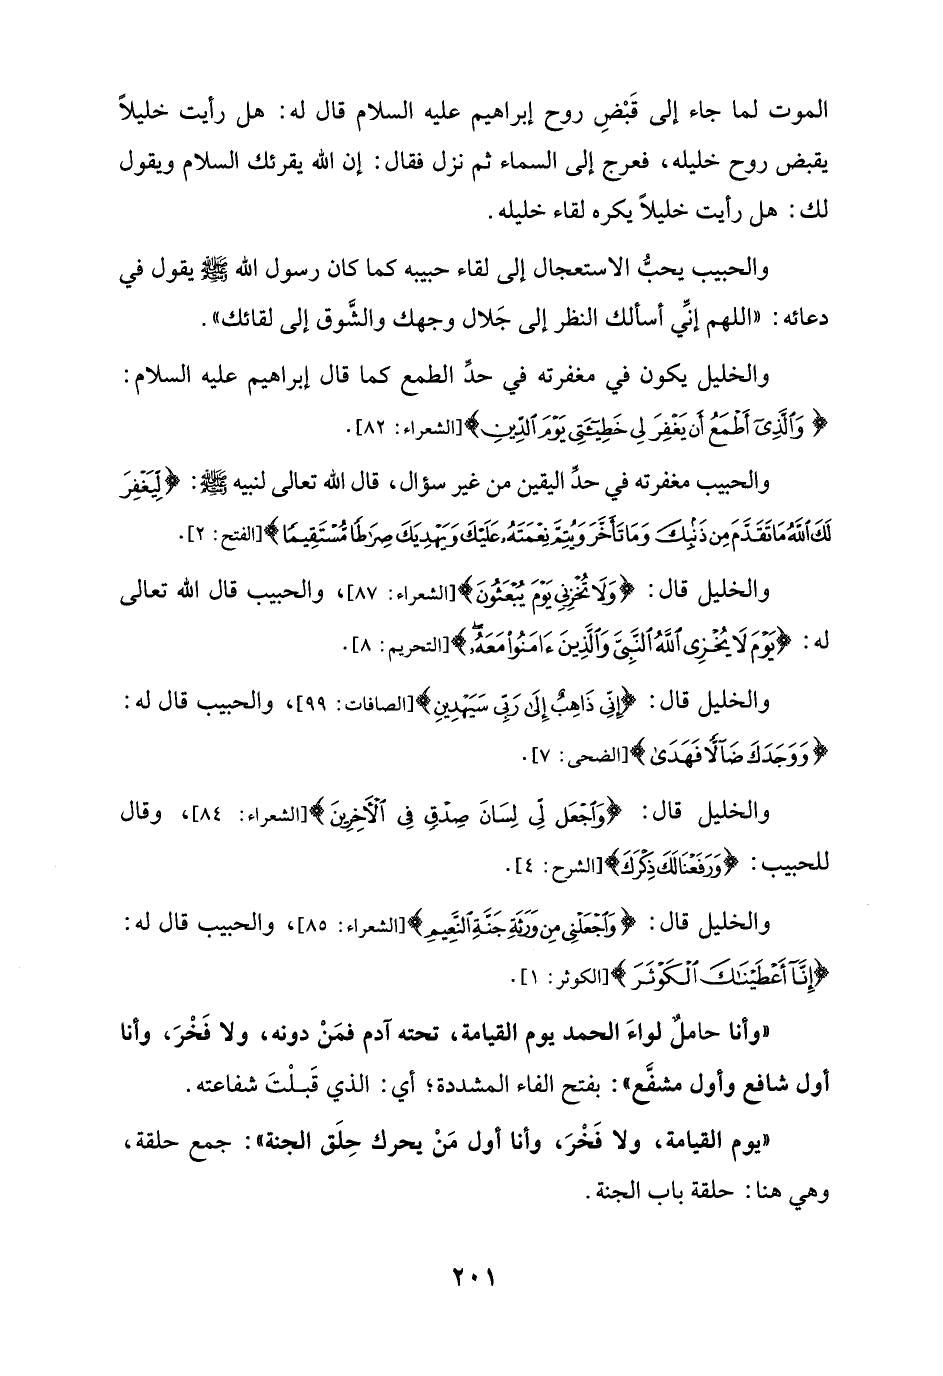 الموت لما جاء إلى قَبْضِ روح إبراهيم عليه السلام قال له: هل رأيت خليلاً
يقبض روح خليله، فعرج إلى السماء ثم نزل فقال: إن الله يقرئك السلام ويقول
لك: هل رأيت خليلاً يكره لقاء خليله.
والحبيب يحبُّ الاستعجال إلى لقاء حبيبه كما كان رسول الله ﷺ يقول في
دعائه: «اللهم إنِّي أسألك النظر إلى جَلال وجهك والشَّوق إلى لقائك».
والخليل يكون في مغفرته في حدِّ الطمع كما قال إبراهيم عليه السلام:
﴿وَٱلَّذِىٓ أَطْمَعُ أَن يَغْفِرَ لِى خَطِيٓـَٔتِى يَوْمَ ٱلدِّينِ﴾ [الشعراء: ٨٢].
والحبيب مغفرته في حدِّ اليقين من غير سؤال، قال الله تعالى لنبيه ﷺ: ﴿لِّيَغْفِرَ
لَكَ ٱللَّهُ مَا تَقَدَّمَ مِن ذَنۢبِكَ وَمَا تَأَخَّرَ وَيُتِمَّ نِعْمَتَهُۥ عَلَيْكَ وَيَهْدِيَكَ صِرَٰطًا مُّسْتَقِيمًا﴾ [الفتح: ٢].
والخليل قال: ﴿وَلَا تُخْزِنِى يَوْمَ يُبْعَثُونَ﴾ [الشعراء: ٨٧]، والحبيب قال الله تعالى
له: ﴿يَوْمَ لَا يُخْزِى ٱللَّهُ ٱلنَّبِىَّ وَٱلَّذِينَ ءَامَنُوا۟ مَعَهُۥ﴾ [التحريم: ٨].
والخليل قال: ﴿إِنِّى ذَاهِبٌ إِلَىٰ رَبِّى سَيَهْدِينِ﴾ [الصافات: ٩٩]، والحبيب قال له:
﴿وَوَجَدَكَ ضَآلًّا فَهَدَىٰ﴾ [الضحى: ٧].
والخليل قال: ﴿وَٱجْعَل لِّى لِسَانَ صِدْقٍ فِى ٱلْـَٔاخِرِينَ﴾ [الشعراء: ٨٤]، وقال
للحبيب: ﴿وَرَفَعْنَا لَكَ ذِكْرَكَ﴾ [الشرح: ٤].
والخليل قال: ﴿وَٱجْعَلْنِى مِن وَرَثَةِ جَنَّةِ ٱلنَّعِيمِ﴾ [الشعراء: ٨٥]، والحبيب قال له:
﴿إِنَّآ أَعْطَيْنَٰكَ ٱلْكَوْثَرَ﴾ [الكوثر: ١].
«وأنا حاملٌ لواءَ الحمد يوم القيامة، تحته آدم فمَنْ دونه، ولا فَخْرَ، وأنا
أول شافع وأول مشفَّع»: بفتح الفاء المشددة؛ أي: الذي قَبلْتَ شفاعته.
«يوم القيامة، ولا فَخْرَ، وأنا أول مَنْ يحرك حِلَق الجنة»: جمع حلقة،
وهي هنا: حلقة باب الجنة.
٢٠١